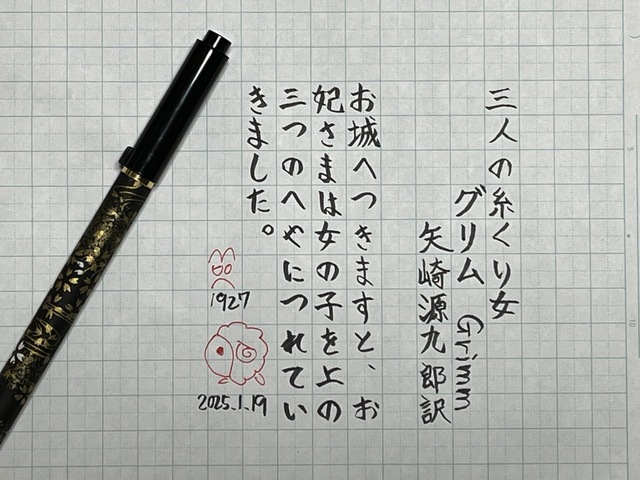 三人の糸くり女
グリム Grimm
矢崎源九郎訳
お城へつきますと、お
妃さまは女の子を上の
三つのへやにつれてい
きました。
1927
2025.1.19